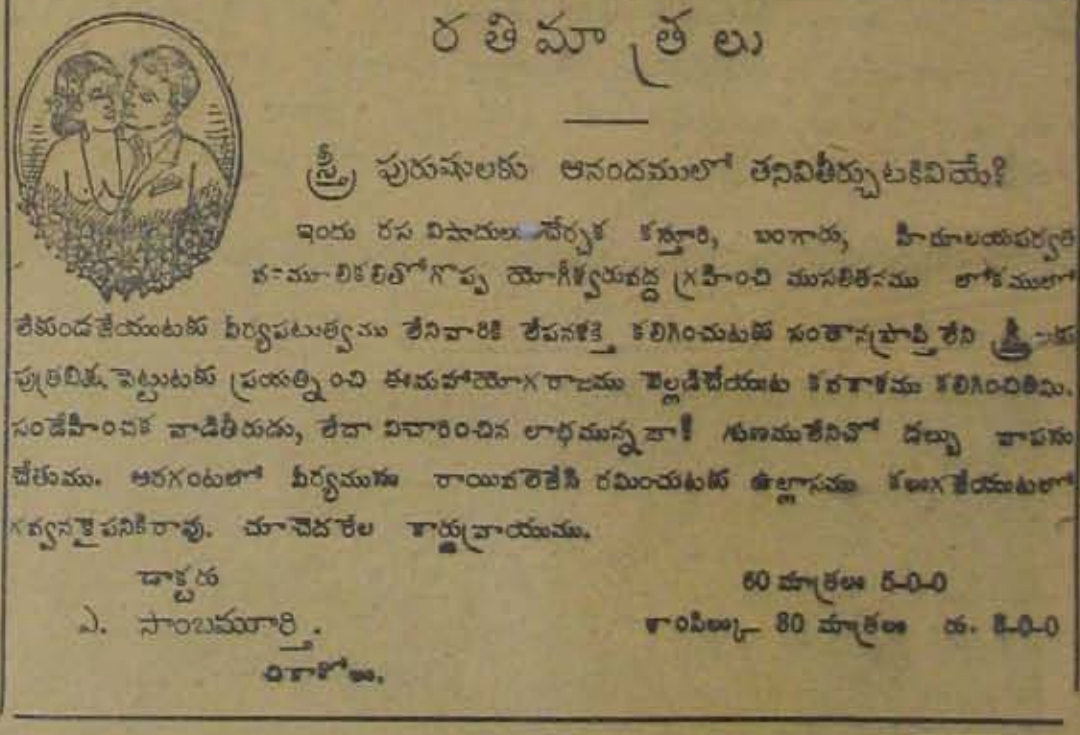 రతిమాత్రలు
స్త్రీ పురుషులకు ఆనందములో తనివితీర్చుటకివియేకి
ఇందు రస విషాదులు చేర్చక కస్తూరి, బంగారు, హిమాలయపర్వత
యోగీశ్వరువద్ద గ్రహించి ముసలితనము లోకములో
లేకుండజేయుటకు వీర్యపటుత్వము లేనివారికి లేపనశక్తి కలిగించుటకు సంతానప్రాప్తి లేని
పుత్రభిక్ష పెట్టుటకు ప్రయత్నించి ఈమహాయోగరాజము వెల్లడిచేయుట కవకాశము కలిగించితిమి.
సందేహించక వాడితీరుడు, లేదా విచారించిన లాభమున్నదా? గుణములేనిచో డబ్బు వాపసు
చేతుము. అరగంటలో వీర్యమును రాయివలెజేసి రమించుటకు ఉల్లాసము కలుగజేయుటలో
గవ్వనకైపనికిరావు. చూచెదరేల కార్డువ్రాయుము.
డాక్టరు
60 మాత్రలు 5-0-0
ఎ. సాంబమూర్తి.
శాంపిల్కు 30 మాత్రలు రు. 3-0-0
చికాకోలు.